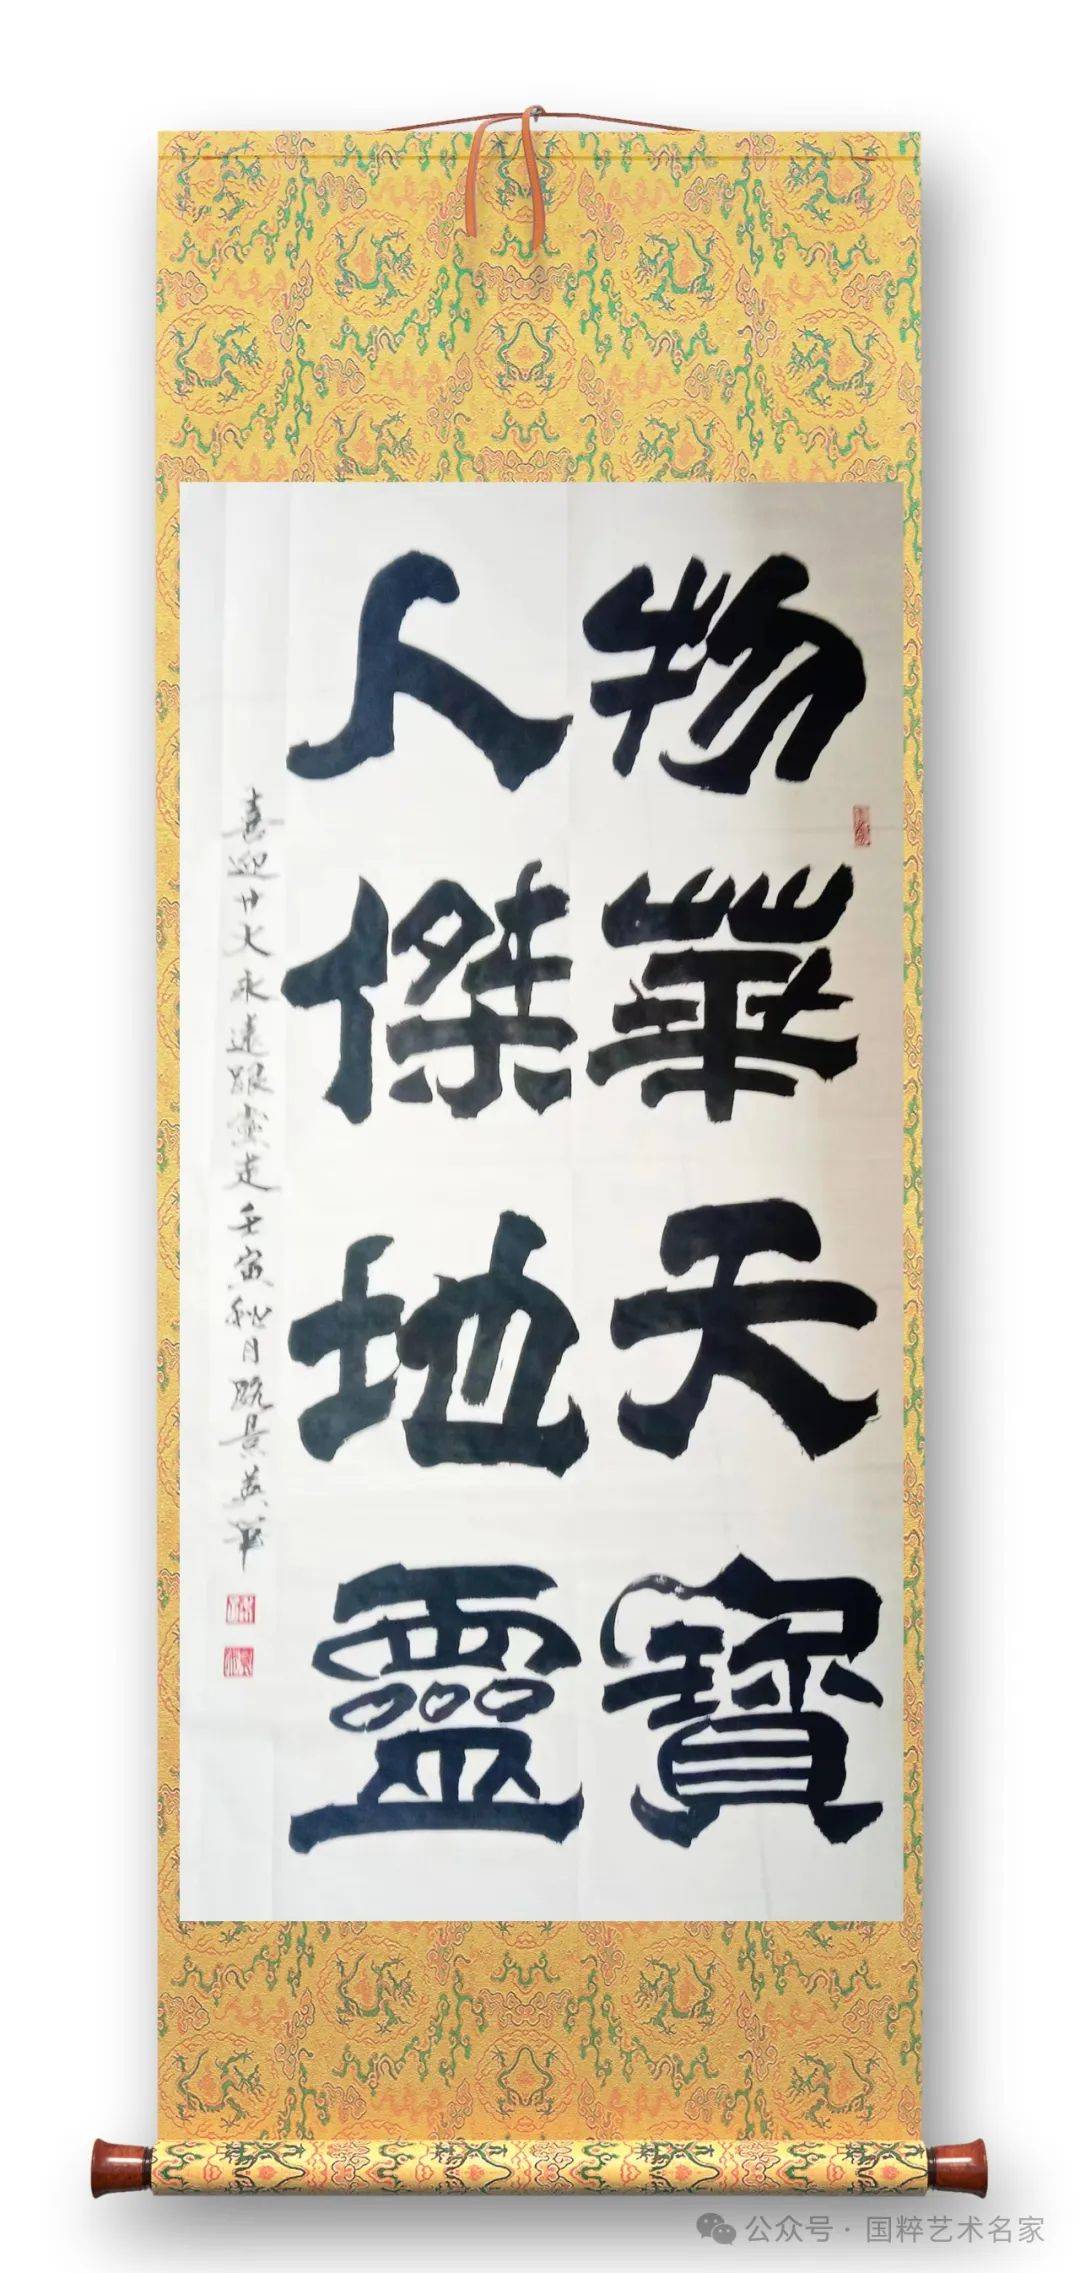 物華天寶
人傑地靈
喜迎廿大永遠跟黨走壬寅秋月 景英筆
公众号·国粹艺术名家